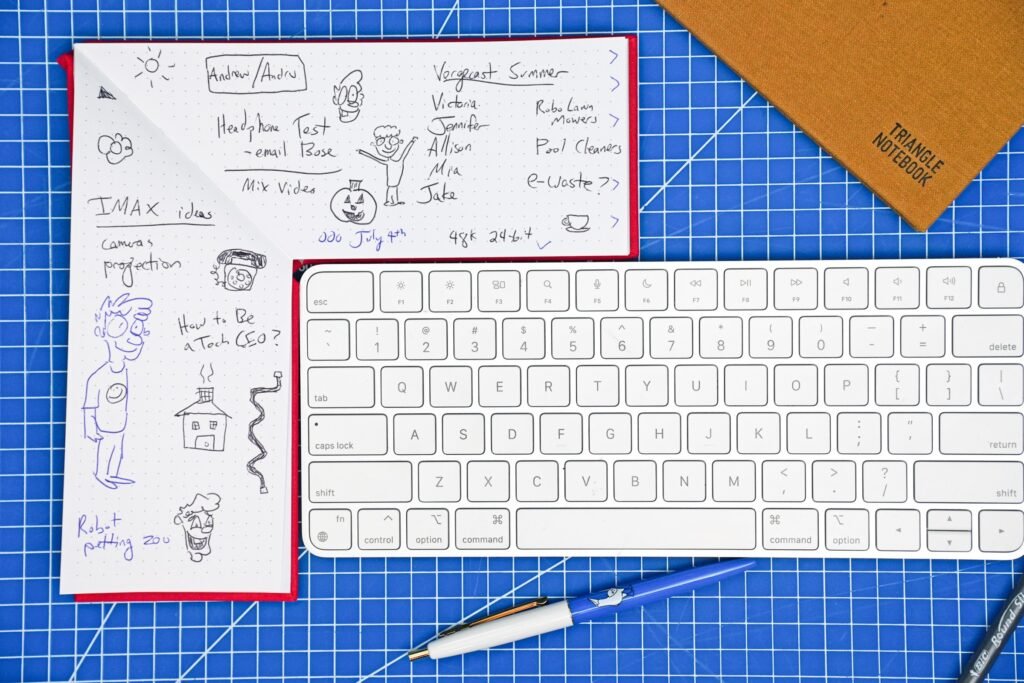 Andrew/Andru
Headphone Test
- email Bose
Mix Video
Vergecast Summer
Victoria
Jennifer
Allison
Mia
Jake
Robo Lawn
Mowers
Pool Cleaners
e-waste?
July 4th
48k 24-bit
IMAX ideas
cameras
projection
How to Be
a Tech CEO?
Robot
petting zoo
TRIANGLE
NOTEBOOK
esc F1 F2 F3 F4 F5 F6 F7 F8 F9 F10 F11 F12
~ ! @ # $ % ^ & * ( ) — +
` 1 2 3 4 5 6 7 8 9 0 - = delete
tab Q W E R T Y U I O P { [ } ] | \
caps lock A S D F G H J K L : ; " ' return
shift Z X C V B N M < , > . ? / shift
fn control option command command option
BIC Round St